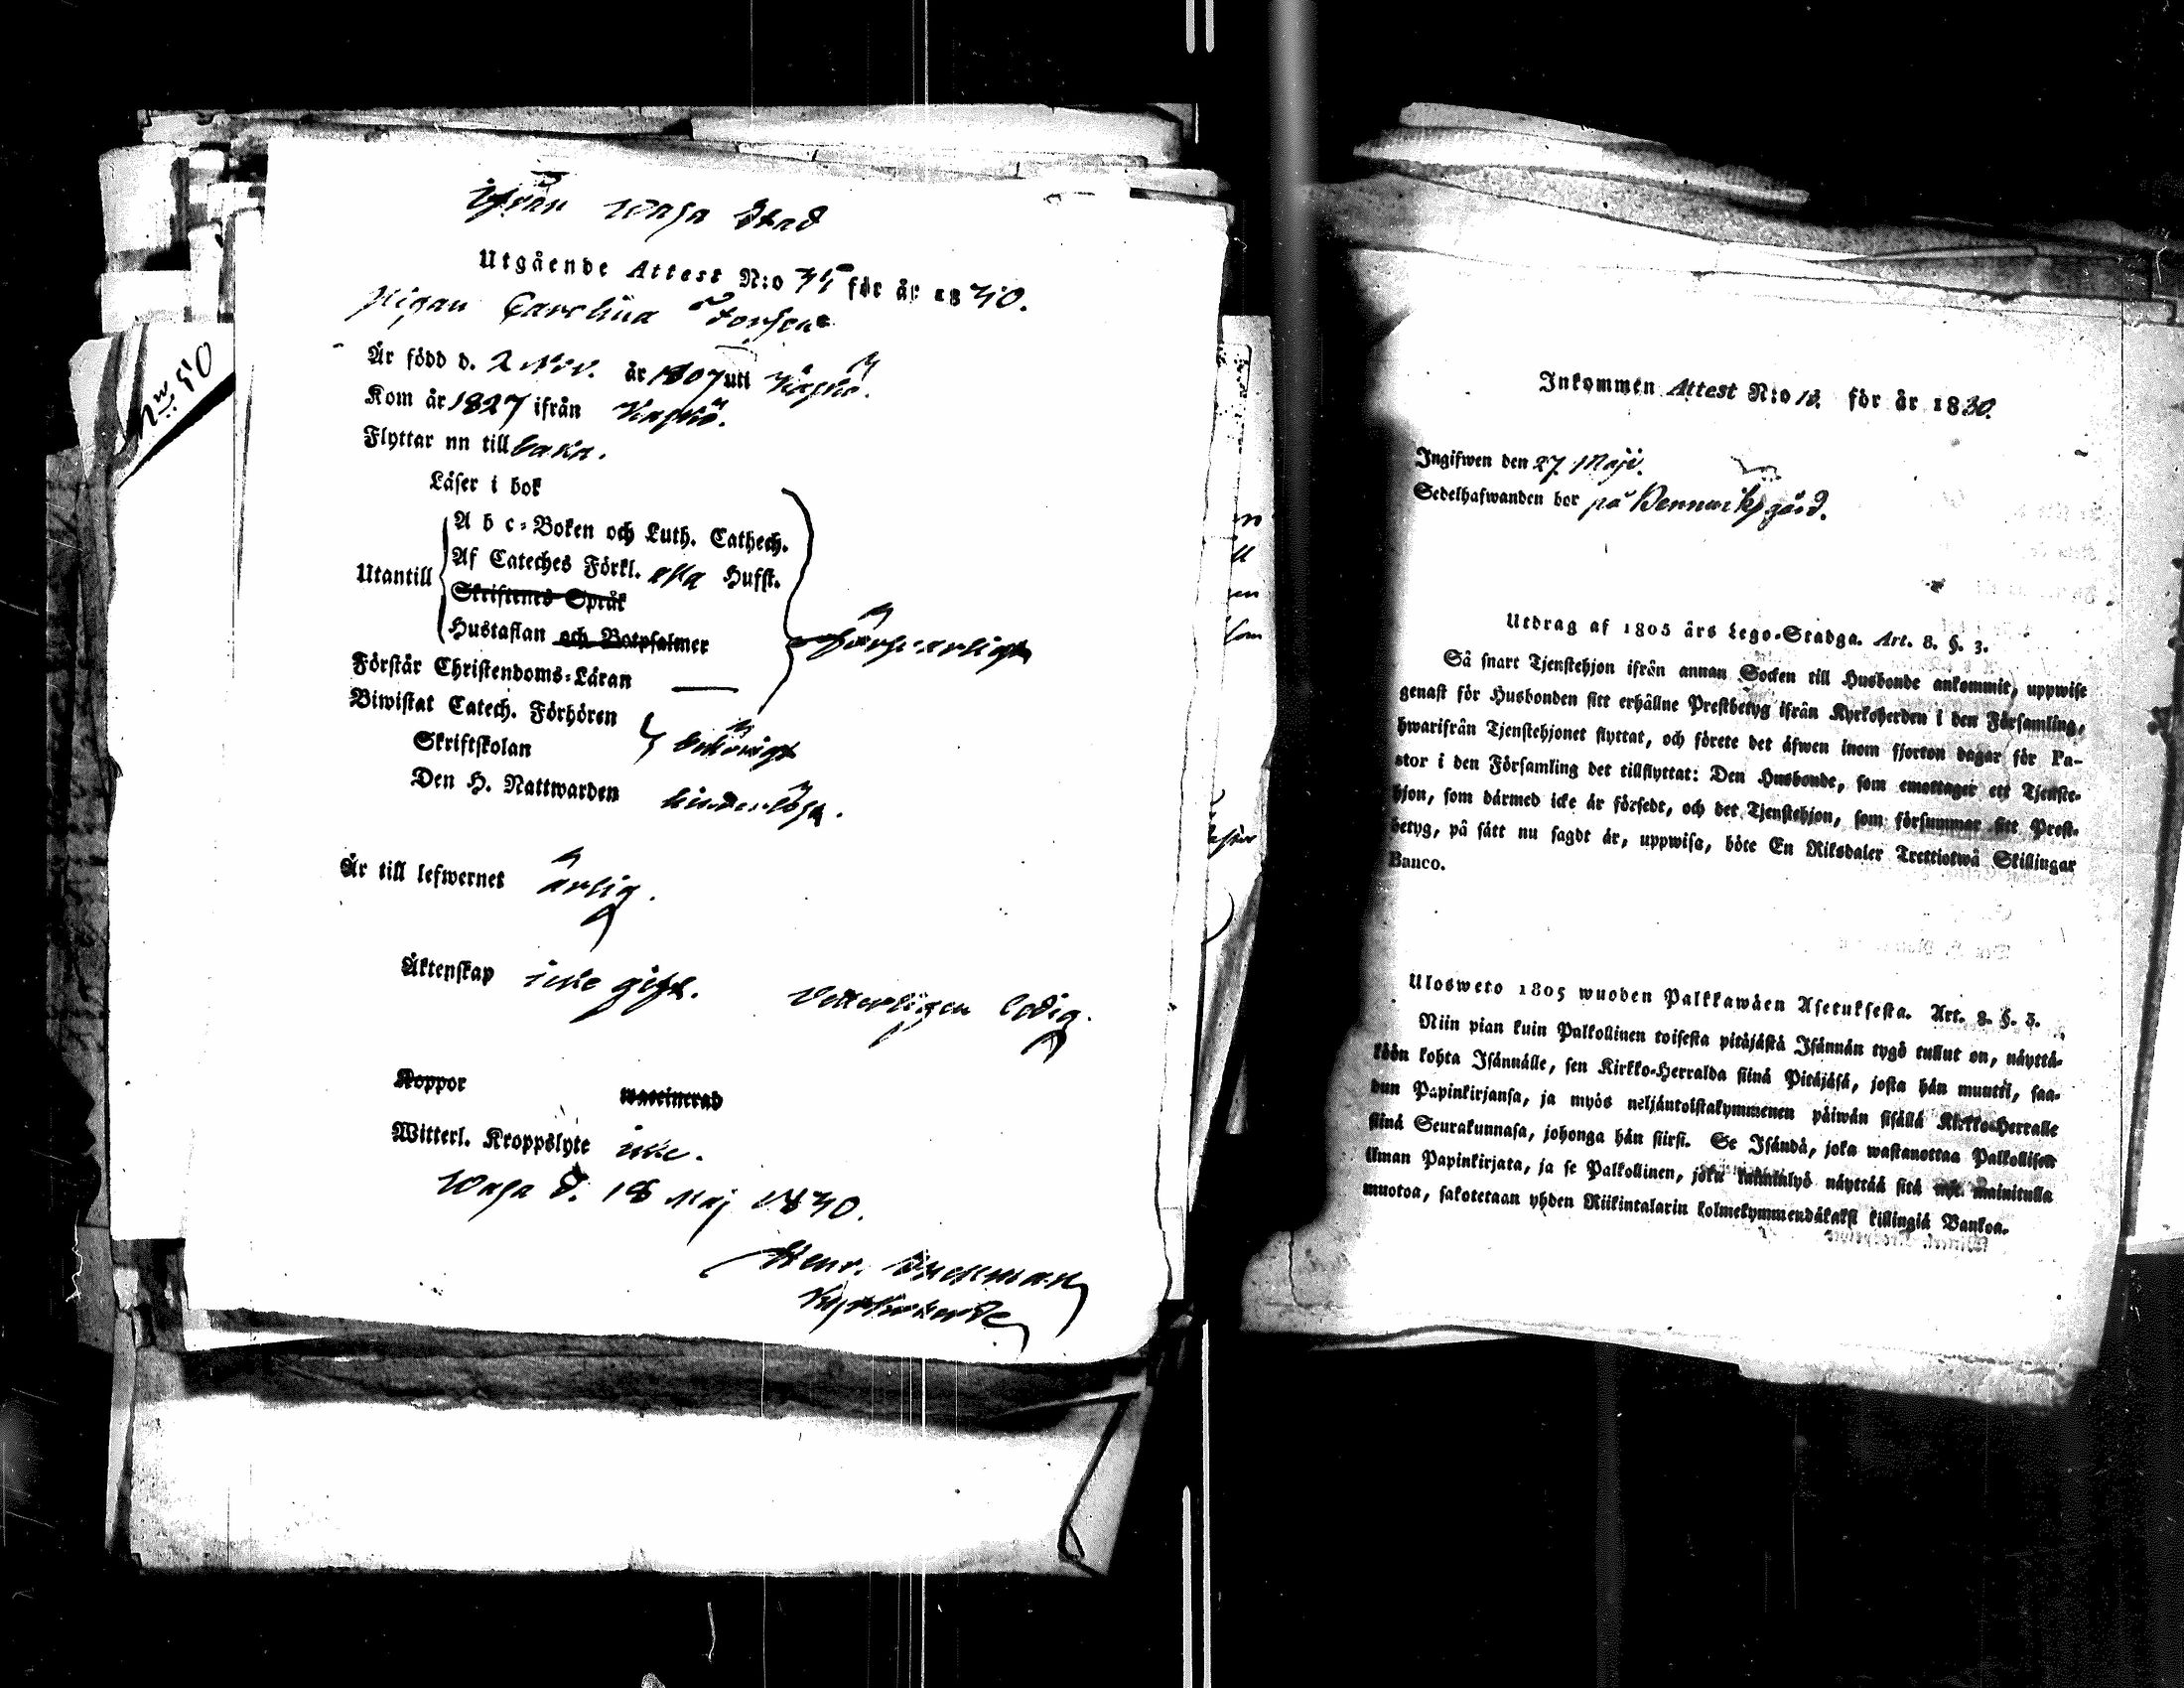 ifrån Wasa Stad
Utgående Attest N:o 35 för år 1830.
Pigan Carolina Forsen
Är född d. 2 Nov. år 1807 uti Kaskö.
Kom år 1827 ifrån Kaskö.
Flyttar nn till baka.
Läser i bok
Utantill
A b c-Boken och Luth. Cathech.
Af Cateches Förkl. alla Hufst.
Skriftenes Språk
Hustaflan och Botpsalmer
försvarligt
Förstår Christendoms-Läran —
Biwistat Catech. Förhören
Skriftskolan
behörigt
Den H. Nattwarden hinderlösa.
Är till lefwernet ärlig.
Äktenskap icke gift. Vetterligen ledig.
Koppor waccinerad
Witterl. Kroppslyte icke.
Wasa d. 18 Maj 1830.
Henr.
Kyrkoherde
N:o 50
Inkommen Attest N:o 13. för år 1830.
Ingifwen den 27 Maji.
Sedelhafwanden bor på gård.
Utdrag af 1805 års Lego-Stadga. Art. 8. §. 3.
Så snart Tjenstehjon ifrån annan Socken till Husbonde ankommit, uppwise
genast för Husbonden sitt erhållne Prestbetyg ifrån Kyrkoherden i den Församling,
hwarifrån Tjenstehjonet flyttat, och förete det äfwen inom fjorton dagar för Pa-
stor i den Församling det tillflyttat: Den Husbonde, som emottager ett Tjenste-
hjon, som dårmed icke är försedt, och det Tjenstehjon, som försummar sitt Prest-
betyg, på sått nu sagdt är, uppwisa, böte En Riksdaler Trettiotwå Skillingar
Banco.
Ulosweto 1805 wuoden Palkkawäen Asetuksesta. Art. 8. §. 3.
Niin pian kuin Palkollinen toisesta pitäjästä Isännän tygö tullut on, näyttä-
köön kohta Isännälle, sen Kirkko-Herralda siinä Pitäjäsä, josta hän muutti, saa-
dun Papinkirjansa, ja myös neljäntoistakymmenen päiwän sisällä Kirkko-Herralle
siinä Seurakunnasa, johonga hän siirsi. Se Isändä, joka wastanottaa Palkollisen
ilman Papinkirjata, ja se Palkollinen, joka laiminlyö näyttää sitä nyt mainitulla
muotoa, sakotetaan yhden Riikintalarin kolmekymmendäkaksi killingiä Bankoa.